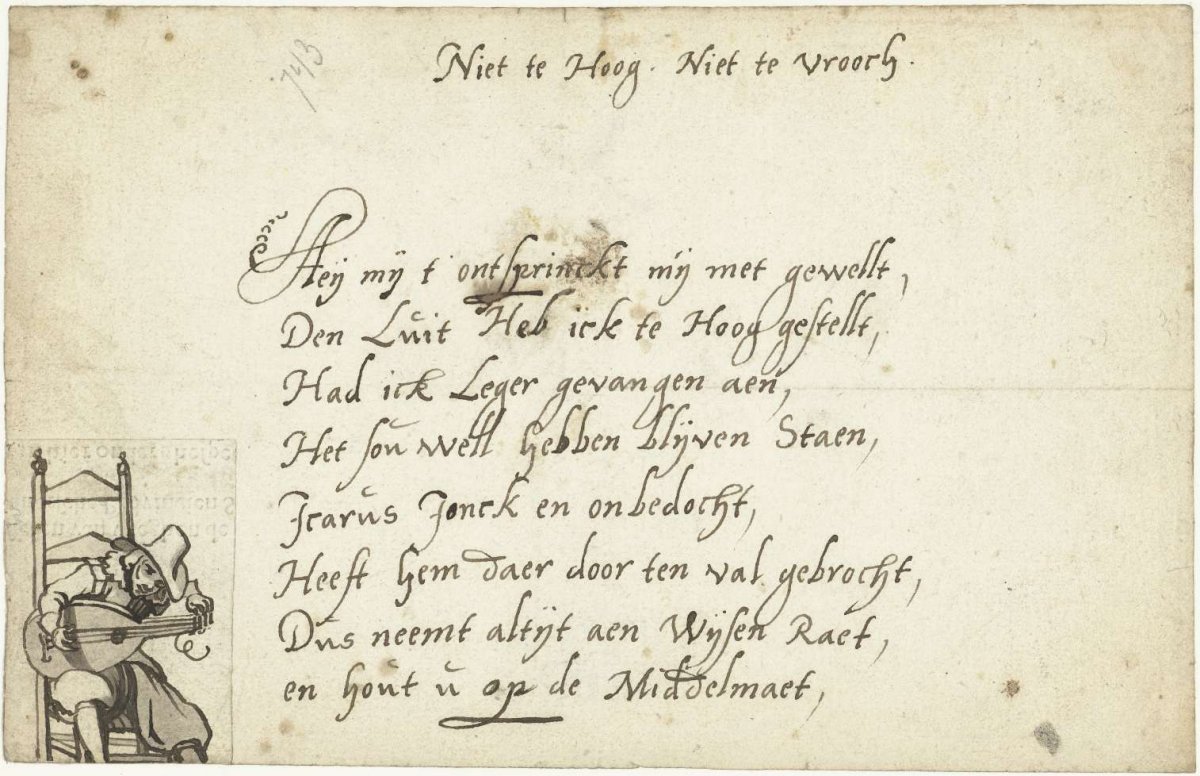 1743
Niet te Hoog. Niet te vrooch.
Aeij mij t ontsprinckt mij met gewellt,
Den Luit Heb ick te Hoog gestellt,
Had ick Leger gevangen aen,
Het sou well hebben blijven Staen,
Icarus Jonck en onbedocht,
Heeft hem daer door ten val gebrocht,
Dus neemt altijt aen Wijsen Raet,
en hout u op de Middelmaet,